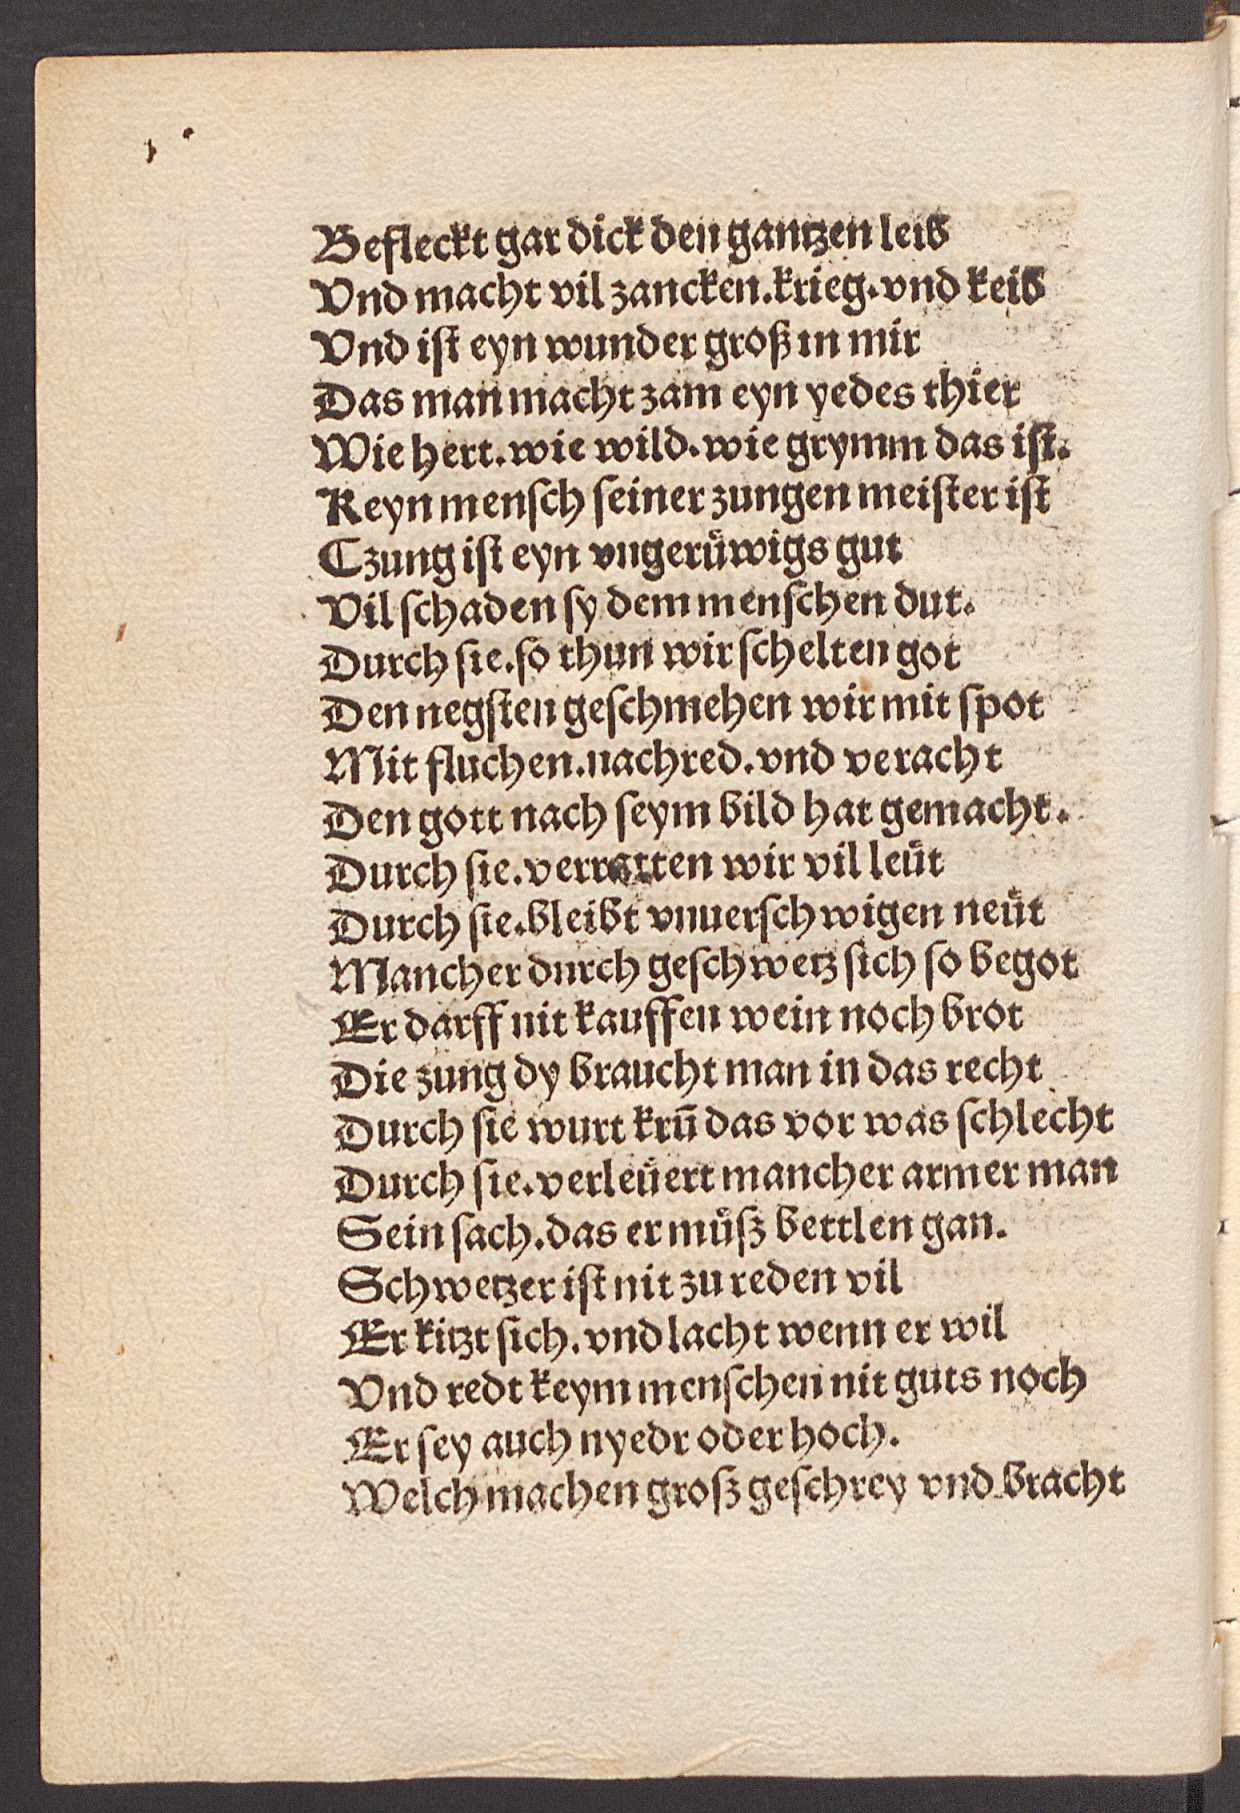 Befleckt gar dick den gantzen leib
Vnd macht vil zancken.krieg.vnd keib
Vnd ist eyn wunder groß in mir
Das man macht zam eyn yedes thier
Wie hert.wie wild.wie grymm das ist.
Keyn mensch seiner zungen meister ist
Czung ist eyn vngerüwigs gut
Vil schaden sy dem menschen dut.
Durch sie.so thun wir schelten got
Den negsten geschmehen wir mit spot
Mit fluchen.nachred.vnd veracht
Den gott nach seym bild hat gemacht.
Durch sie.verratten wir vil leüt
Durch sie.bleibt vnuerschwigen neüt
Mancher durch geschwetz sich so begot
Er darff nit kauffen wein noch brot
Die zung dy braucht man in das recht
Durch sie wurt krū das vor was schlecht
Durch sie.verleüert mancher armer man
Sein sach.das er müß bettlen gan.
Schwetzer ist nit zu reden vil
Er kitzt sich.vnd lacht wenn er wil
Vnd redt keym menschen nit guts noch
Er sey auch nyedr oder hoch.
Welch machen groß geschrey vnd bracht